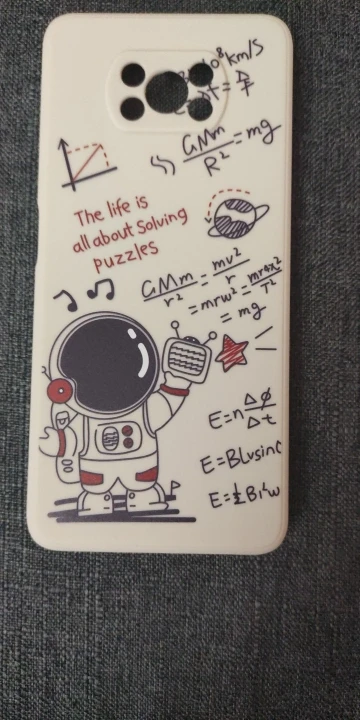 10⁸km/s
t = D/F
GMm/R² = mg
The life is
all about solving
puzzles
GMm/r² = mv²/r
= mrw² = mr4π²/T²
= mg
E=nΔø/Δt
E=BLvsinc
E=½Bl²w